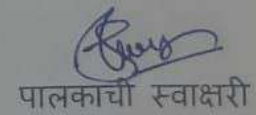 पालकाची स्वाक्षरी